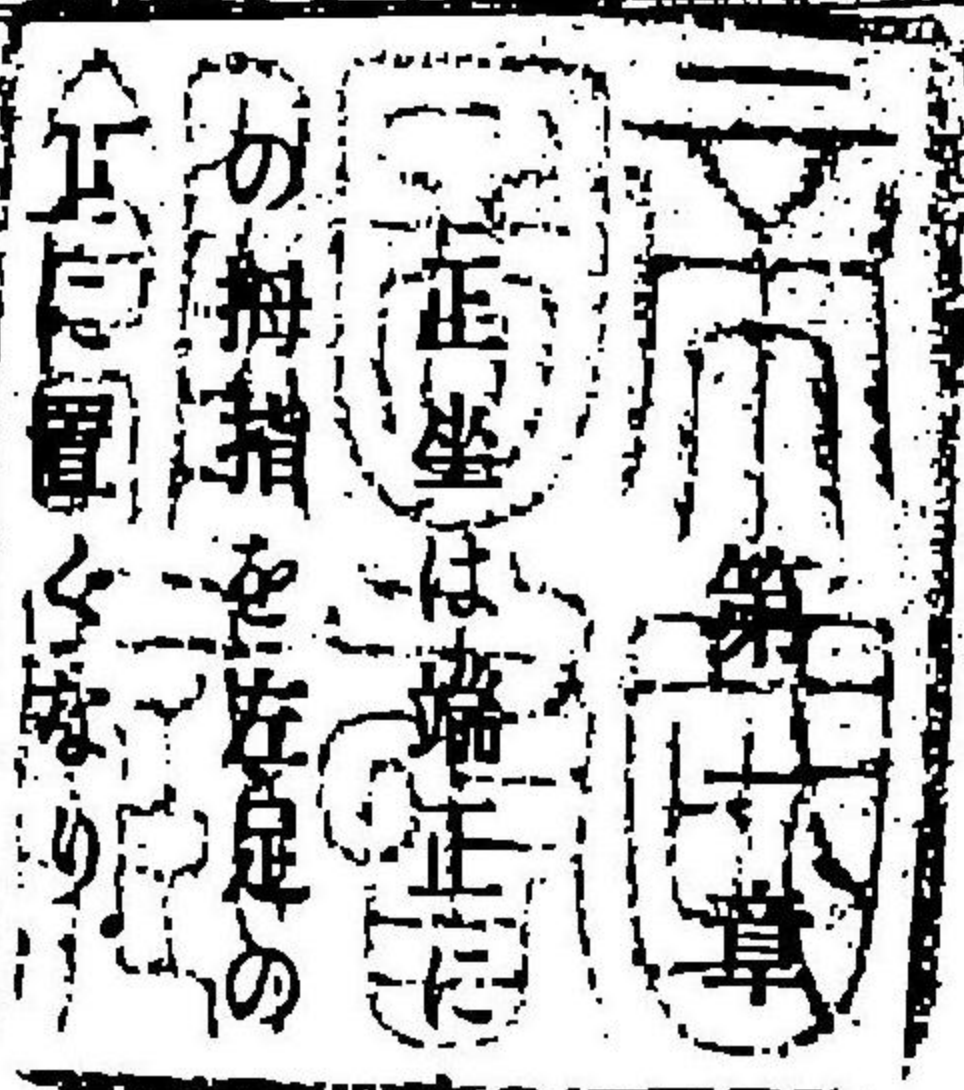 第十章
正坐は端正に
の拇指を左足の
上に置くなり